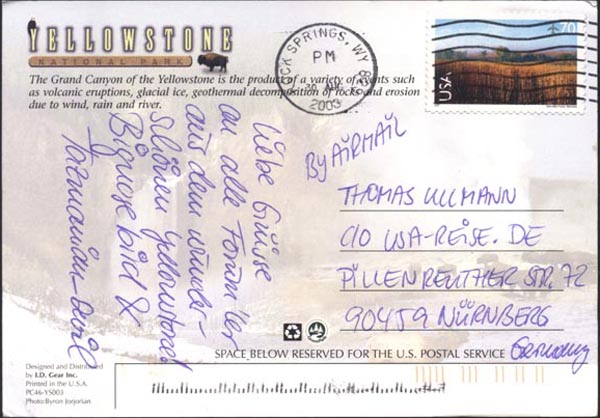 YELLOWSTONE
NATIONAL PARK
The Grand Canyon of the Yellowstone is the product of a variety of events such
as volcanic eruptions, glacial ice, geothermal decomposition of rocks and erosion
due to wind, rain and river.
ROCK SPRINGS, WY
PM
2003
70
USA
Liebe Grüsse
an alle Forum'ler
aus dem wunder-
schönen Yellowstone!
Bignose bird &
Tazmanian-devil
By AiRMAiL
THOMAS ULLMANN
C/O USA-REiSE.DE
PiLLENREUTHER STR. 72
90459 NÜRNBERG
Germany
SPACE BELOW RESERVED FOR THE U.S. POSTAL SERVICE
Designed and Distributed
by I.D. Gear Inc.
Printed in the U.S.A.
PC46-YS003
Photo:Byron Jorjorian